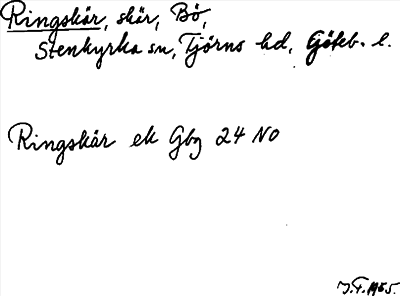 Ringskär, skär, Bö,
Stenkyrka sn, Tjörns hd, Göteb. l.
Ringskär ek Gbg 24 NO
J.F. 1955.